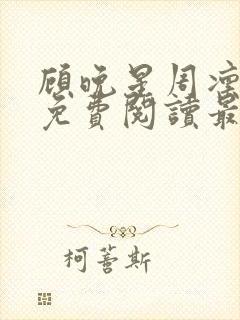 顧晚星周凜
免費閱讀最
柯蓍斯